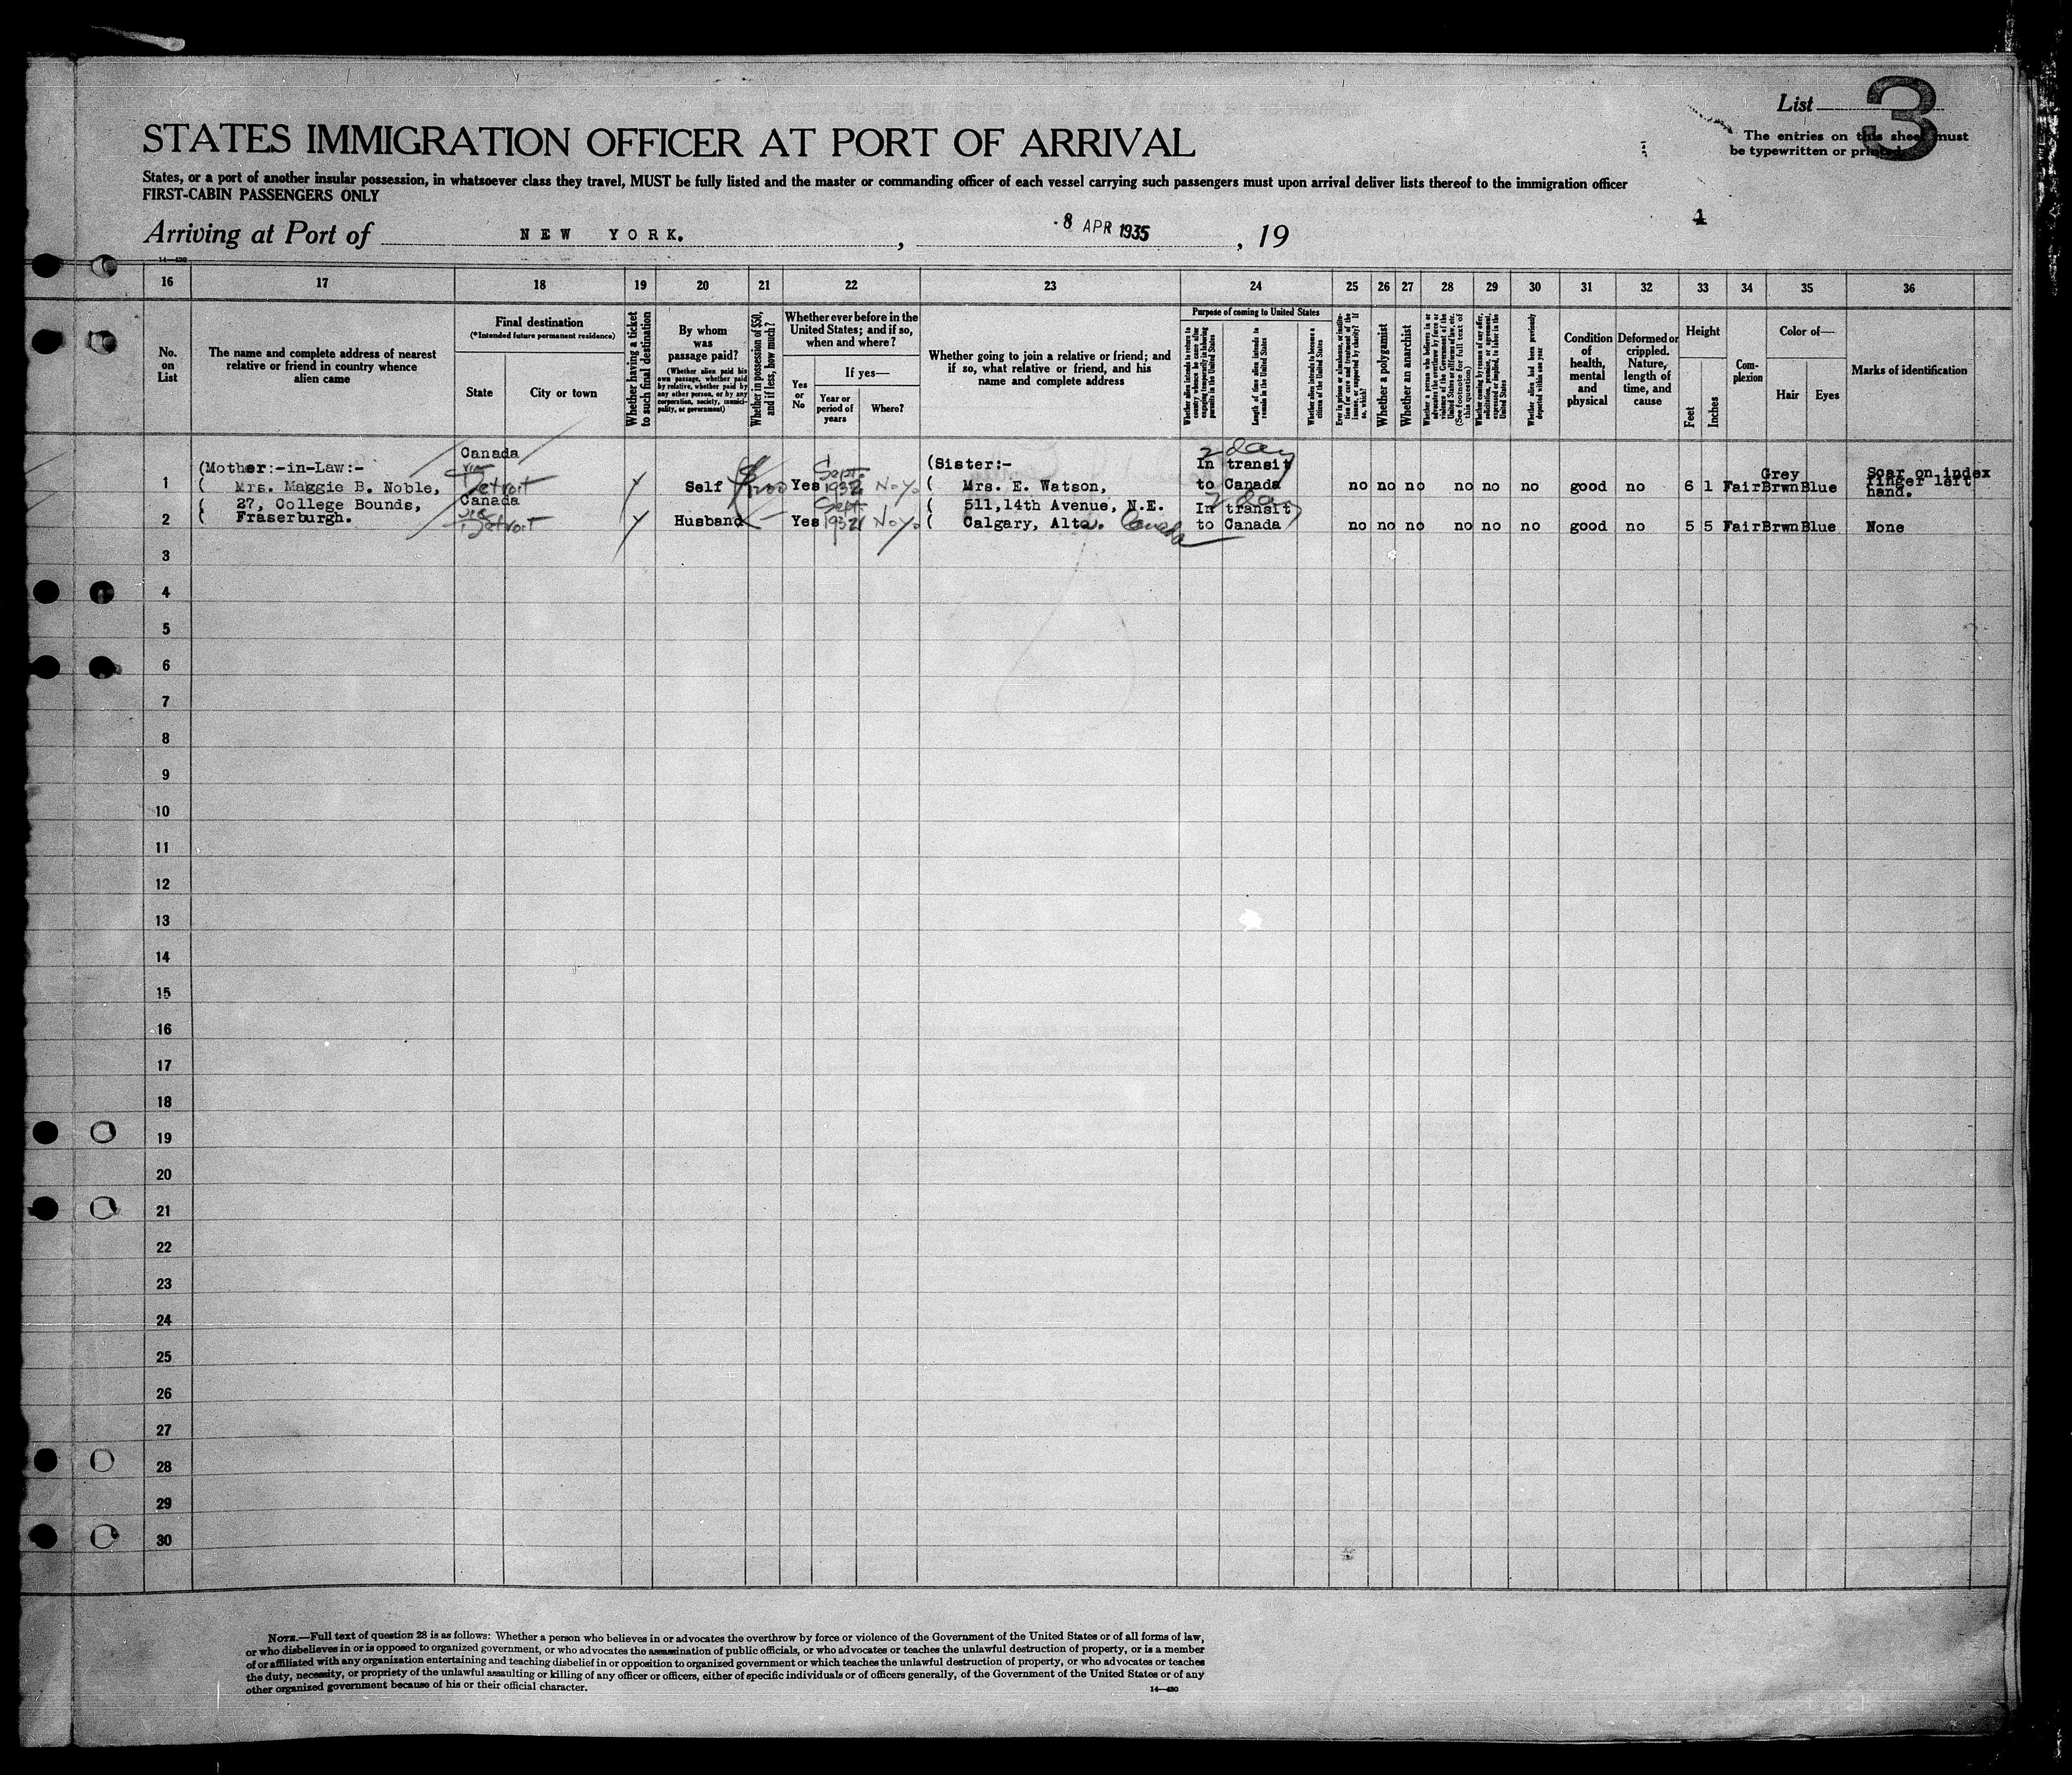 List 3
The entries on this sheet must
be typewritten or printed.
STATES IMMIGRATION OFFICER AT PORT OF ARRIVAL
States, or a port of another insular possession, in whatsoever class they travel, MUST be fully listed and the master or commanding officer of each vessel carrying such passengers must upon arrival deliver lists thereof to the immigration officer
FIRST-CABIN PASSENGERS ONLY
1
Arriving at Port of NEW YORK. , -8 APR 1935 , 19
14—430
16 17 18 19 20 21 22 23 24 25 26 27 28 29 30 31 32 33 34 35 36
No.
on
List
The name and complete address of nearest
relative or friend in country whence
alien came
Final destination
(*Intended future permanent residence)
State
City or town
Whether having a ticket
to such final destination
By whom
was
passage paid?
(Whether alien paid his
own passage, whether paid
by relative, whether paid by
any other person, or by any
corporation, society, munici-
pality, or government)
Whether in possession of $50,
and if less, how much?
Whether ever before in the
United States; and if so,
when and where?
Yes
or
No
If yes—
Year or
period of
years
Where?
Whether going to join a relative or friend; and
if so, what relative or friend, and his
name and complete address
Purpose of coming to United States
Whether alien intends to return to
country whence he came after
engaging temporarily in laboring
pursuits in the United States
Length of time alien intends to
remain in the United States
Whether alien intends to become a
citizen of the United States
Ever in prison or almshouse, or institu-
tion for care and treatment of the
insane, or supported by charity? If
so, which?
Whether a polygamist
Whether an anarchist
Whether a person who believes in or
advocates the overthrow by force or
violence of the Government of the
United States or all forms of law, etc.
(See footnote for full text of
this question)
Whether coming by reason of any offer,
solicitation, promise, or agreement,
expressed or implied, to labor in the
United States
Whether alien had been previously
deported within one year
Condition
of
health,
mental
and
physical
Deformed or
crippled.
Nature,
length of
time, and
cause
Height
Feet
Inches
Com-
plexion
Color of—
Hair
Eyes
Marks of identification
1
(Mother:-in-Law:-
( Mrs. Maggie B. Noble,
( 27, College Bounds,
( Fraserburgh.
Canada
via
Detroit
Self
Yes
Sept.
1932
N.Y.
(Sister:-
( Mrs. E. Watson,
( 511,14th Avenue, N.E.
( Calgary, Alta. Canada
2 day
In transit
to Canada
no no no no no no good no 6 1 Fair Grey Brwn Blue
Scar on index
finger left
hand.
2
Canada
via
Detroit
Husband
Yes
Sept
1932
N.Y.
2 day
In transit
to Canada
no no no no no no good no 5 5 Fair Brwn Blue None
3
4
5
6
7
8
9
10
11
12
13
14
15
16
17
18
19
20
21
22
23
24
25
26
27
28
29
30
NOTE.—Full text of question 28 is as follows: Whether a person who believes in or advocates the overthrow by force or violence of the Government of the United States or of all forms of law,
or who disbelieves in or is opposed to organized government, or who advocates the assassination of public officials, or who advocates or teaches the unlawful destruction of property, or is a member
of or affiliated with any organization entertaining and teaching disbelief in or opposition to organized government or which teaches the unlawful destruction of property, or who advocates or teaches
the duty, necessity, or propriety of the unlawful assaulting or killing of any officer or officers, either of specific individuals or of officers generally, of the Government of the United States or of any
other organized government because of his or their official character.
14—430